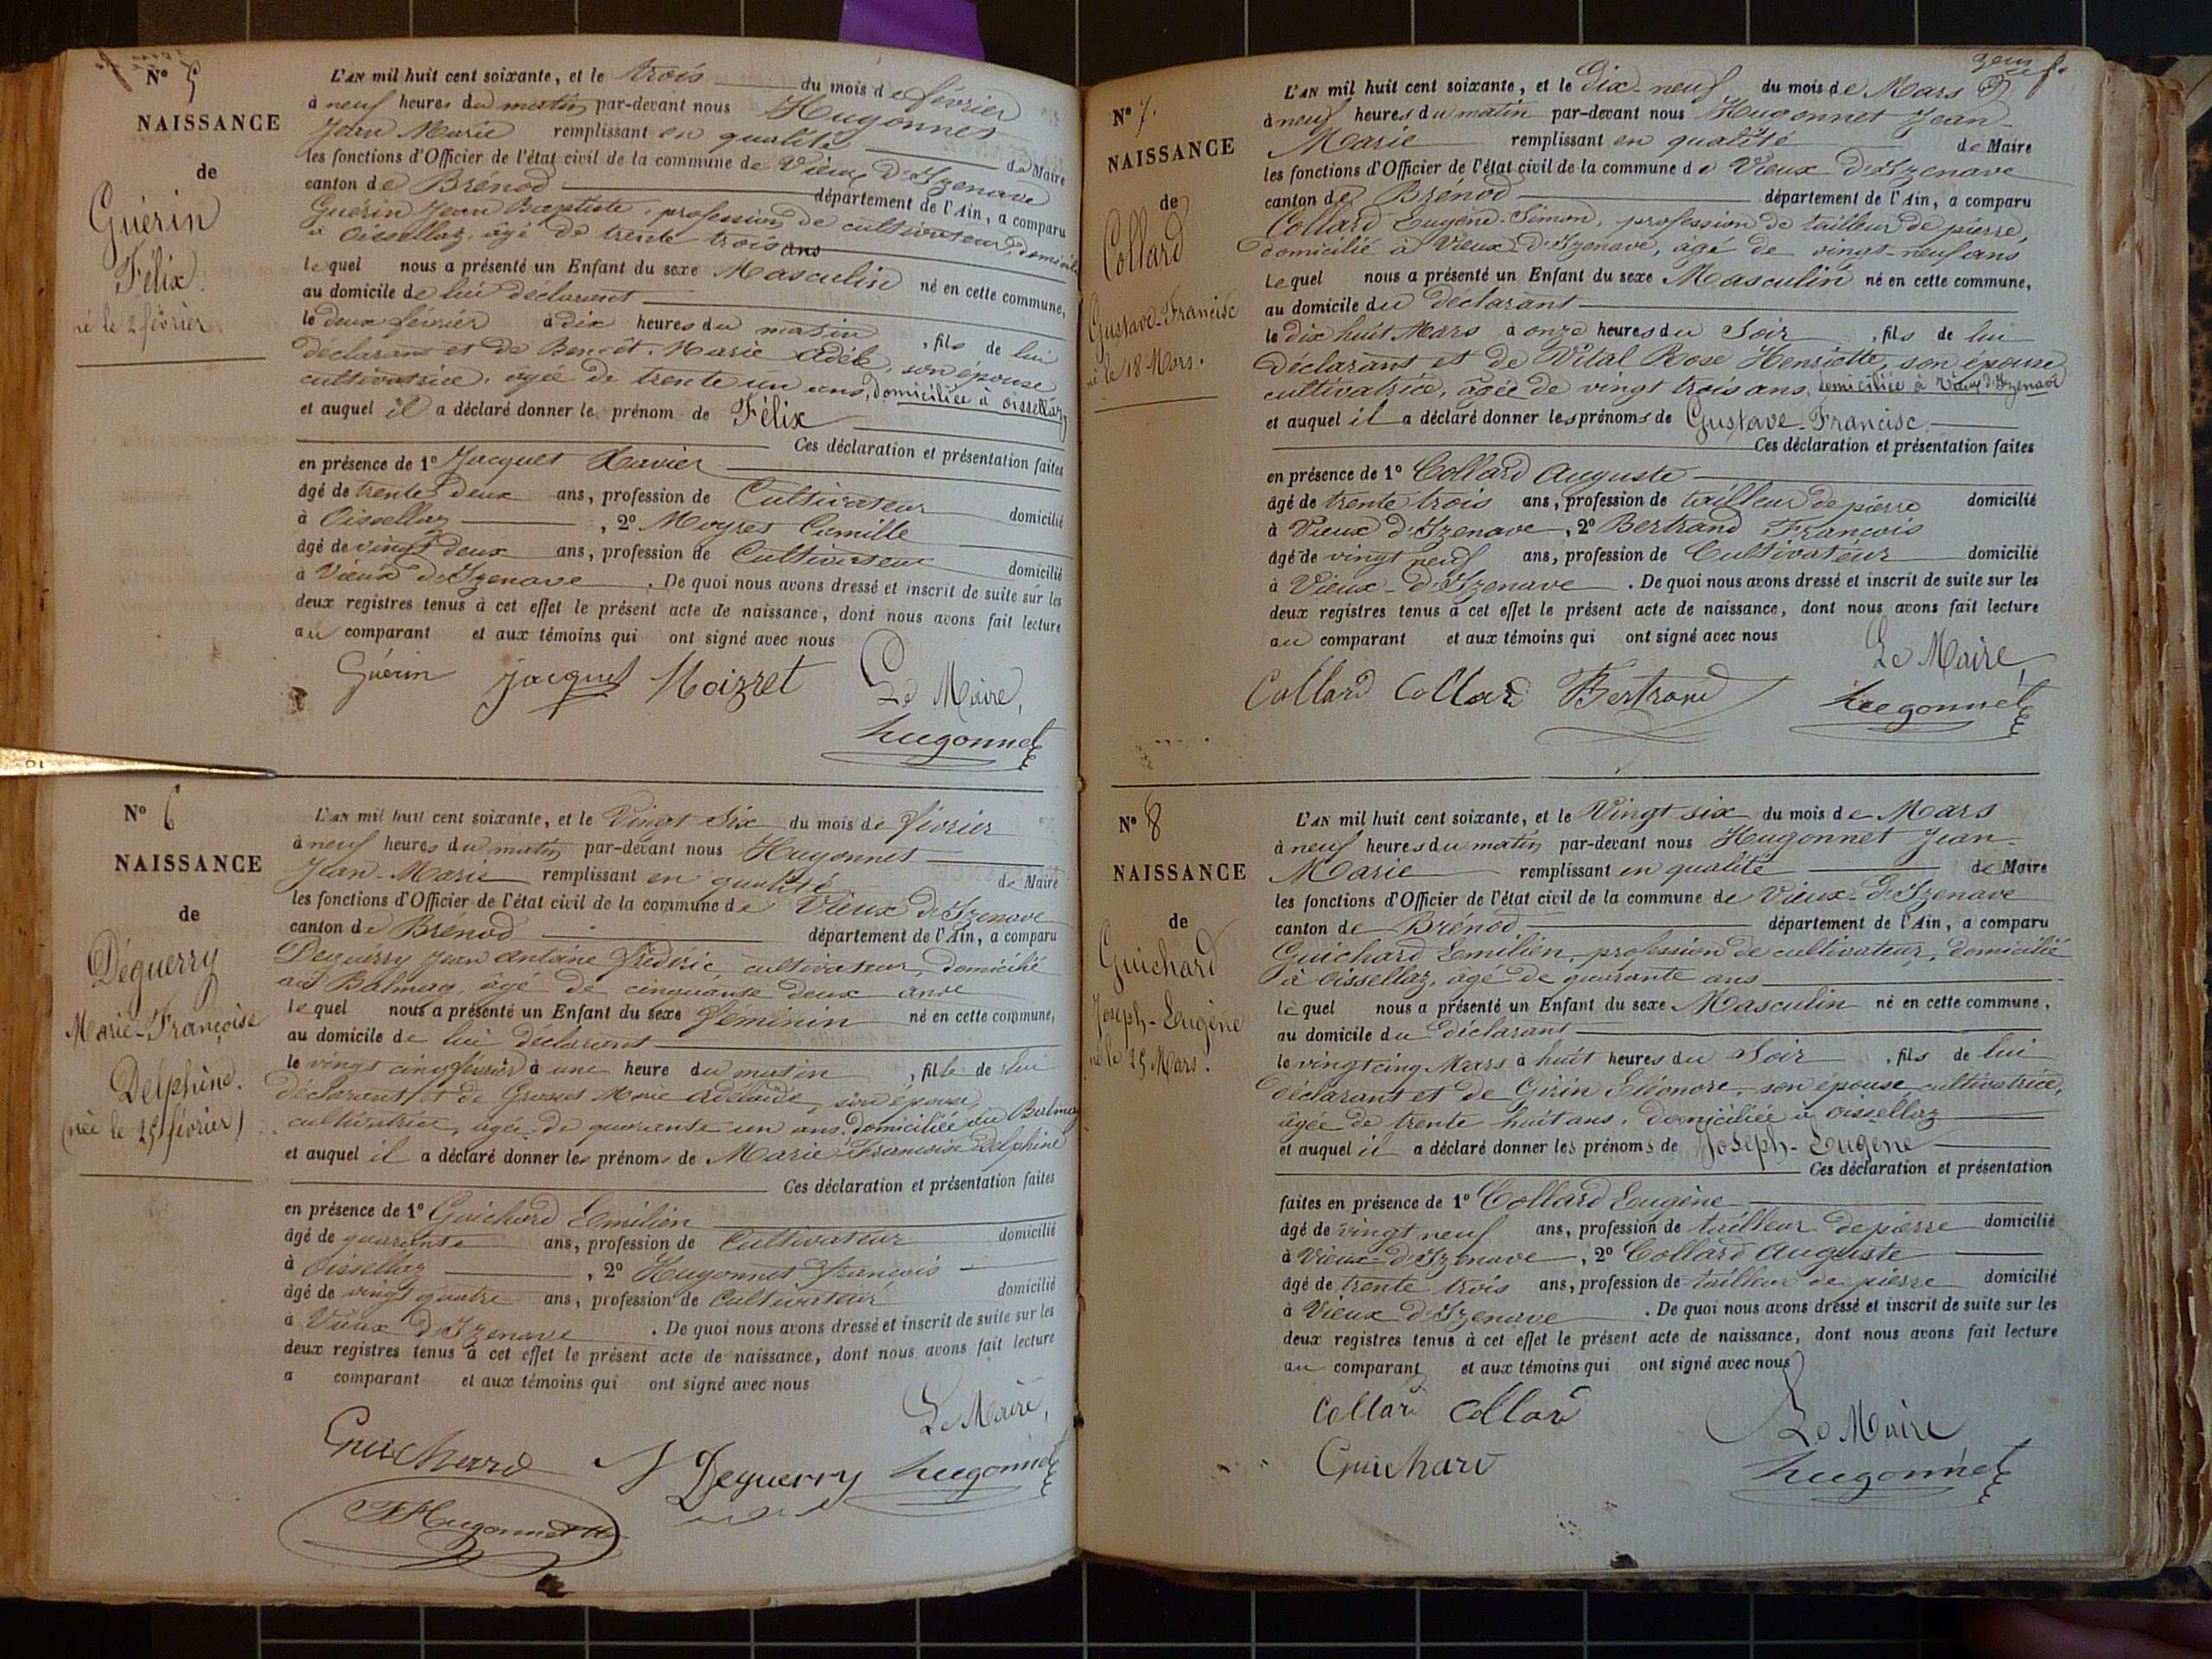 Nº 5
NAISSANCE
de
Guérin
Félix.
né le 2 février
L'AN mil huit cent soixante, et le trois du mois de février
à neuf heures du matin par-devant nous Hugonnet
Jean Marie remplissant en qualité de Maire
les fonctions d'Officier de l'état civil de la commune de Vieux d'Izenave
canton de Brénod département de l'Ain, a comparu
Guérin Jean Baptiste, profession de cultivateur, domicilié
à Oissellaz, âgé de trente trois ans
lequel nous a présenté un Enfant du sexe Masculin né en cette commune,
au domicile de lui déclarant
le deux février à dix heures du matin, fils de lui
déclarant et de Benoît Marie Adèle, son épouse
cultivatrice, âgée de trente un ans, domiciliée à Oissellaz
et auquel il a déclaré donner le prénom de Félix
Ces déclaration et présentation faites
en présence de 1º Jacquet Xavier
âgé de trente deux ans, profession de Cultivateur domicilié
à Oissellaz, 2º Moyret Camille
âgé de vingt deux ans, profession de Cultivateur domicilié
à Vieux d'Izenave. De quoi nous avons dressé et inscrit de suite sur les
deux registres tenus à cet effet le présent acte de naissance, dont nous avons fait lecture
au comparant et aux témoins qui ont signé avec nous
Guérin Jacquet Moizret Le Maire,
hugonnet
Nº 6
NAISSANCE
de
Déguerry
Marie-Françoise
Delphine.
(née le 25 février)
L'AN mil huit cent soixante, et le Vingt Six du mois de février
à neuf heures du matin par-devant nous Hugonnet
Jean-Marie remplissant en qualité de Maire
les fonctions d'Officier de l'état civil de la commune de Vieux d'Izenave
canton de Brénod département de l'Ain, a comparu
Deguerry Jean Antoine Frédéric, cultivateur, domicilié
au Balmay, âgé de cinquante deux ans
lequel nous a présenté un Enfant du sexe féminin né en cette commune,
au domicile de lui déclarant
le vingt cinq février à une heure du matin, fille de lui
déclarant et de Grosset Marie Adélaïde, son épouse
cultivatrice, âgée de quarante un ans, domiciliée au Balmay
et auquel il a déclaré donner les prénoms de Marie Françoise Delphine
Ces déclaration et présentation faites
en présence de 1º Guichard Emilien
âgé de quarante ans, profession de Cultivateur domicilié
à Oissellaz, 2º Hugonnet françois
âgé de vingt quatre ans, profession de Cultivateur domicilié
à Vieux d'Izenave. De quoi nous avons dressé et inscrit de suite sur les
deux registres tenus à cet effet le présent acte de naissance, dont nous avons fait lecture
a comparant et aux témoins qui ont signé avec nous
Le Maire,
Guichard Deguerry hugonnet
F Hugonnet
Nº 7.
NAISSANCE
de
Collard
Gustave-Francisc
né le 18 Mars.
L'AN mil huit cent soixante, et le Dix-neuf du mois de Mars
à neuf heures du matin par-devant nous Hugonnet Jean-
Marie remplissant en qualité de Maire
les fonctions d'Officier de l'état civil de la commune de Vieux-d'Izenave
canton de Brénod département de l'Ain, a comparu
Collard Eugène-Simon, profession de tailleur de pierre,
domicilié à Vieux-d'Izenave, âgé de vingt-neuf ans
lequel nous a présenté un Enfant du sexe Masculin né en cette commune,
au domicile du déclarant
le dix huit Mars à onze heures du Soir, fils de lui
déclarant et de Vital Rose Henriette, son épouse
cultivatrice, âgée de vingt trois ans, domiciliée à Vieux d'Izenave
et auquel il a déclaré donner les prénoms de Gustave-Francisc.
Ces déclaration et présentation faites
en présence de 1º Collard Auguste
âgé de trente trois ans, profession de tailleur de pierre domicilié
à Vieux d'Izenave, 2º Bertrand François
âgé de vingt neuf ans, profession de Cultivateur domicilié
à Vieux-d'Izenave. De quoi nous avons dressé et inscrit de suite sur les
deux registres tenus à cet effet le présent acte de naissance, dont nous avons fait lecture
au comparant et aux témoins qui ont signé avec nous
Le Maire,
Collard Collard Bertrand hugonnet
Nº 8
NAISSANCE
de
Guichard
Joseph-Eugène
né le 25 Mars.
L'AN mil huit cent soixante, et le Vingt six du mois de Mars
à neuf heures du matin par-devant nous Hugonnet Jean-
Marie remplissant en qualité de Maire
les fonctions d'Officier de l'état civil de la commune de Vieux-d'Izenave
canton de Brénod département de l'Ain, a comparu
Guichard Emilien, profession de cultivateur, domicilié
à Oissellaz, âgé de quarante ans
lequel nous a présenté un Enfant du sexe Masculin né en cette commune,
au domicile du déclarant
le vingt cinq Mars à huit heures du Soir, fils de lui
déclarant et de Guérin Eléonore, son épouse, cultivatrice,
âgée de trente huit ans, domiciliée à Oissellaz
et auquel il a déclaré donner les prénoms de Joseph-Eugène
Ces déclaration et présentation
faites en présence de 1º Collard Eugène
âgé de vingt neuf ans, profession de tailleur de pierre domicilié
à Vieux-d'Izenave, 2º Collard Auguste
âgé de trente trois ans, profession de tailleur de pierre domicilié
à Vieux d'Izenave. De quoi nous avons dressé et inscrit de suite sur les
deux registres tenus à cet effet le présent acte de naissance, dont nous avons fait lecture
au comparant et aux témoins qui ont signé avec nous
Collard Collard Le Maire
Guichard hugonnet